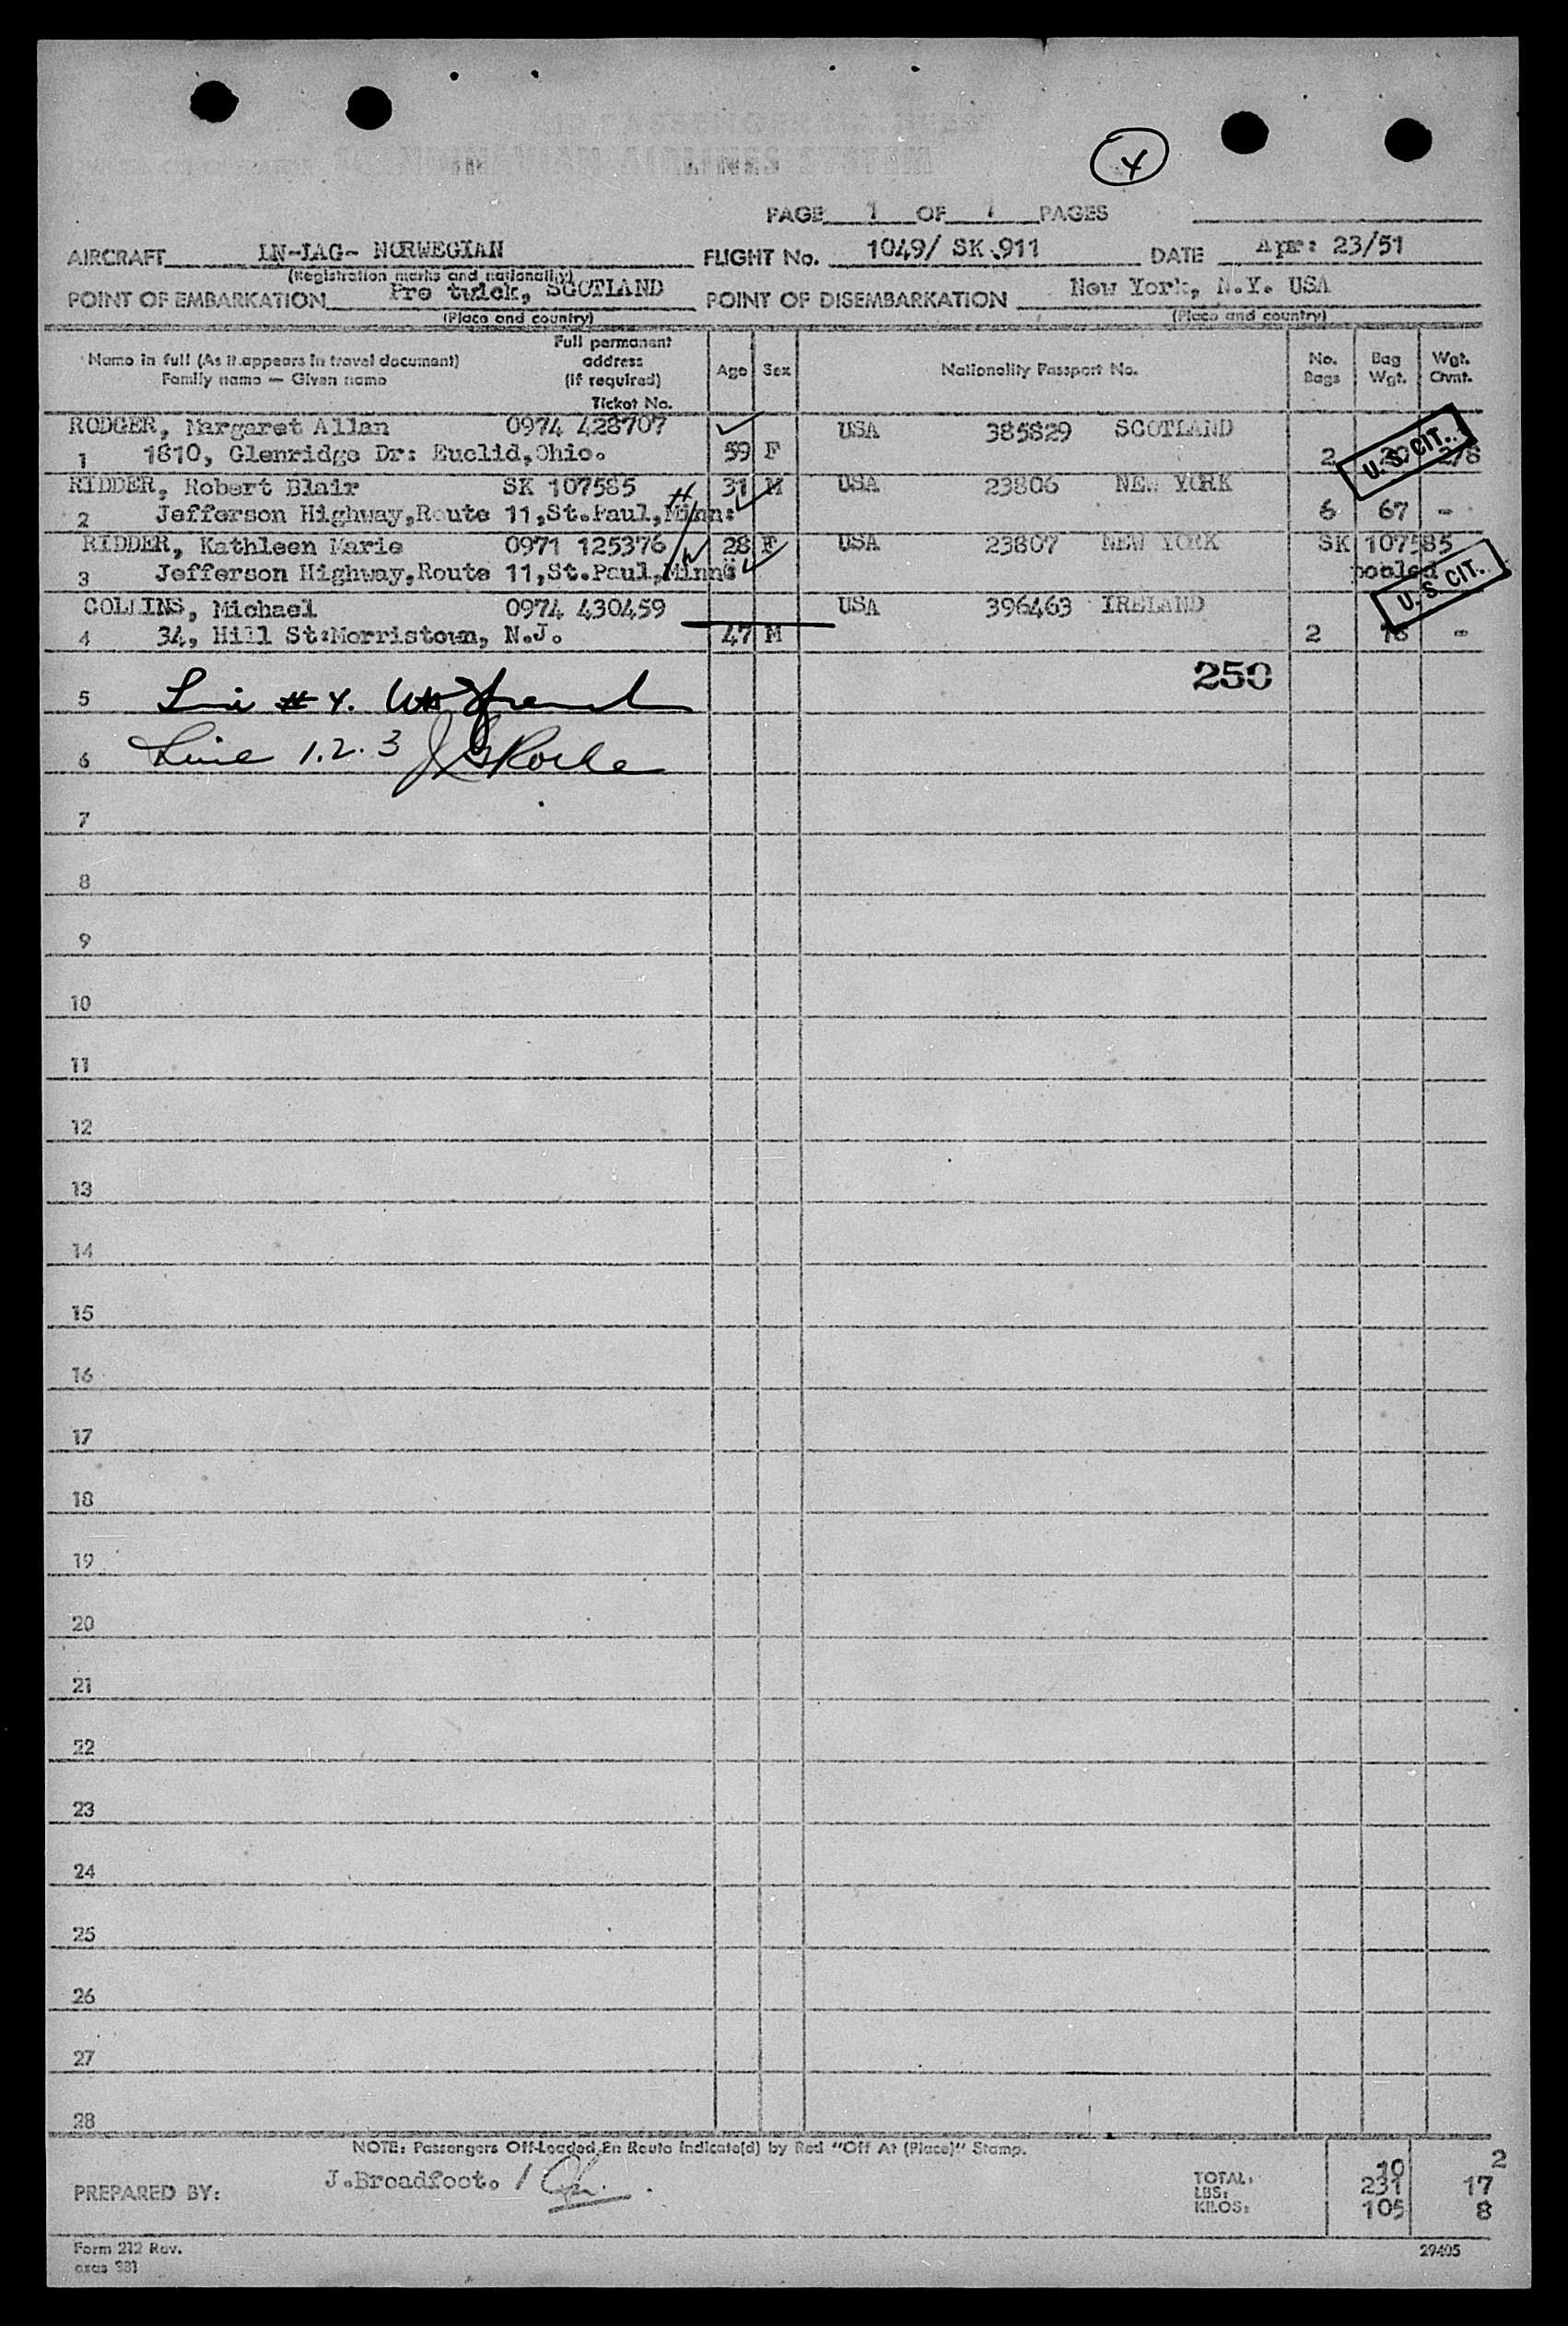 4
PAGE 1 OF 1 PAGES
AIRCRAFT LN-IAG- NORWEGIAN FLIGHT No. 1049/ SK.911 DATE Apr: 23/51
(Registration marks and nationality)
POINT OF EMBARKATION Pre twick, SCOTLAND POINT OF DISEMBARKATION New York, N.Y. USA
(Place and country) (Place and country)
Name in full (As it appears in travel document) Family name — Given name Full permanent address (If required) Ticket No. Age Sex Nationality Passport No. No. Bags Bag Wgt. Wgt. Chrnt.
RODGER, Margaret Allan 0974 428707 USA 385829 SCOTLAND
1 1810, Glenridge Dr: Euclid,Ohio. 59 F 2 2/8
U. S. CIT.
RIDDER, Robert Blair SK 107585 31 M USA 23806 NEW YORK
2 Jefferson Highway,Route 11,St.Paul,Minn: 6 67 -
RIDDER, Kathleen Marie 0971 125376 28 F USA 23807 NEW YORK SK 107585
3 Jefferson Highway,Route 11,St.Paul,Minn: pooled
U. S. CIT.
COLLINS, Michael 0974 430459 USA 396463 IRELAND
4 34, Hill St:Morristown, N.J. 47 M 2 18 -
250
5 Line #4.
6 Line 1.2.3
7
8
9
10
11
12
13
14
15
16
17
18
19
20
21
22
23
24
25
26
27
28
NOTE: Passengers Off-Loaded En Route Indicate(d) by Red "Off At (Place)" Stamp.
PREPARED BY: J.Broadfoot. /
TOTAL: 10 2
LBS: 231 17
KILOS: 105 8
Form 212 Rev. 29405